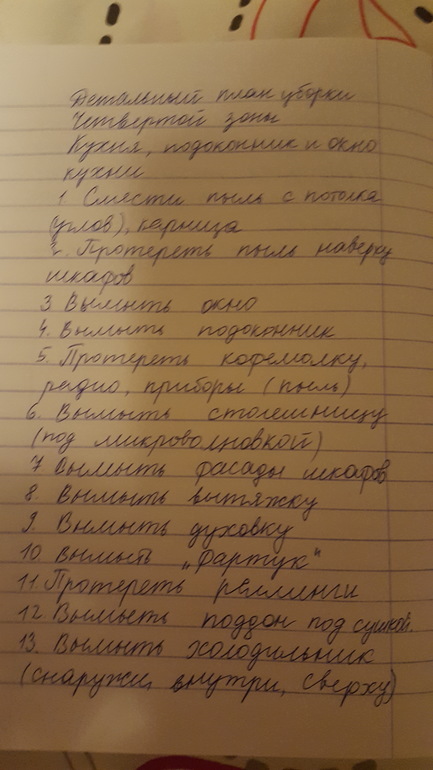 Детальный план уборки
Четвертой зоны
Кухня, подоконник и окно
кухни
1. Смести пыль с потолка
(углов), карниза
2. Протереть пыль наверху
шкафов
3. Вымыть окно
4. Вымыть подоконник
5. Протереть кофемолку,
радио, приборы (пыль)
6. Вымыть столешницу
(под микроволновкой)
7. Вымыть фасады шкафов
8 Вымыть вытяжку
9. Вымыть духовку
10 Вымыть „Фартук“
11. Протереть реллинги
12. Вымыть поддон под сушкой.
13. Вымыть холодильник
(снаружи, внутри, сверху)